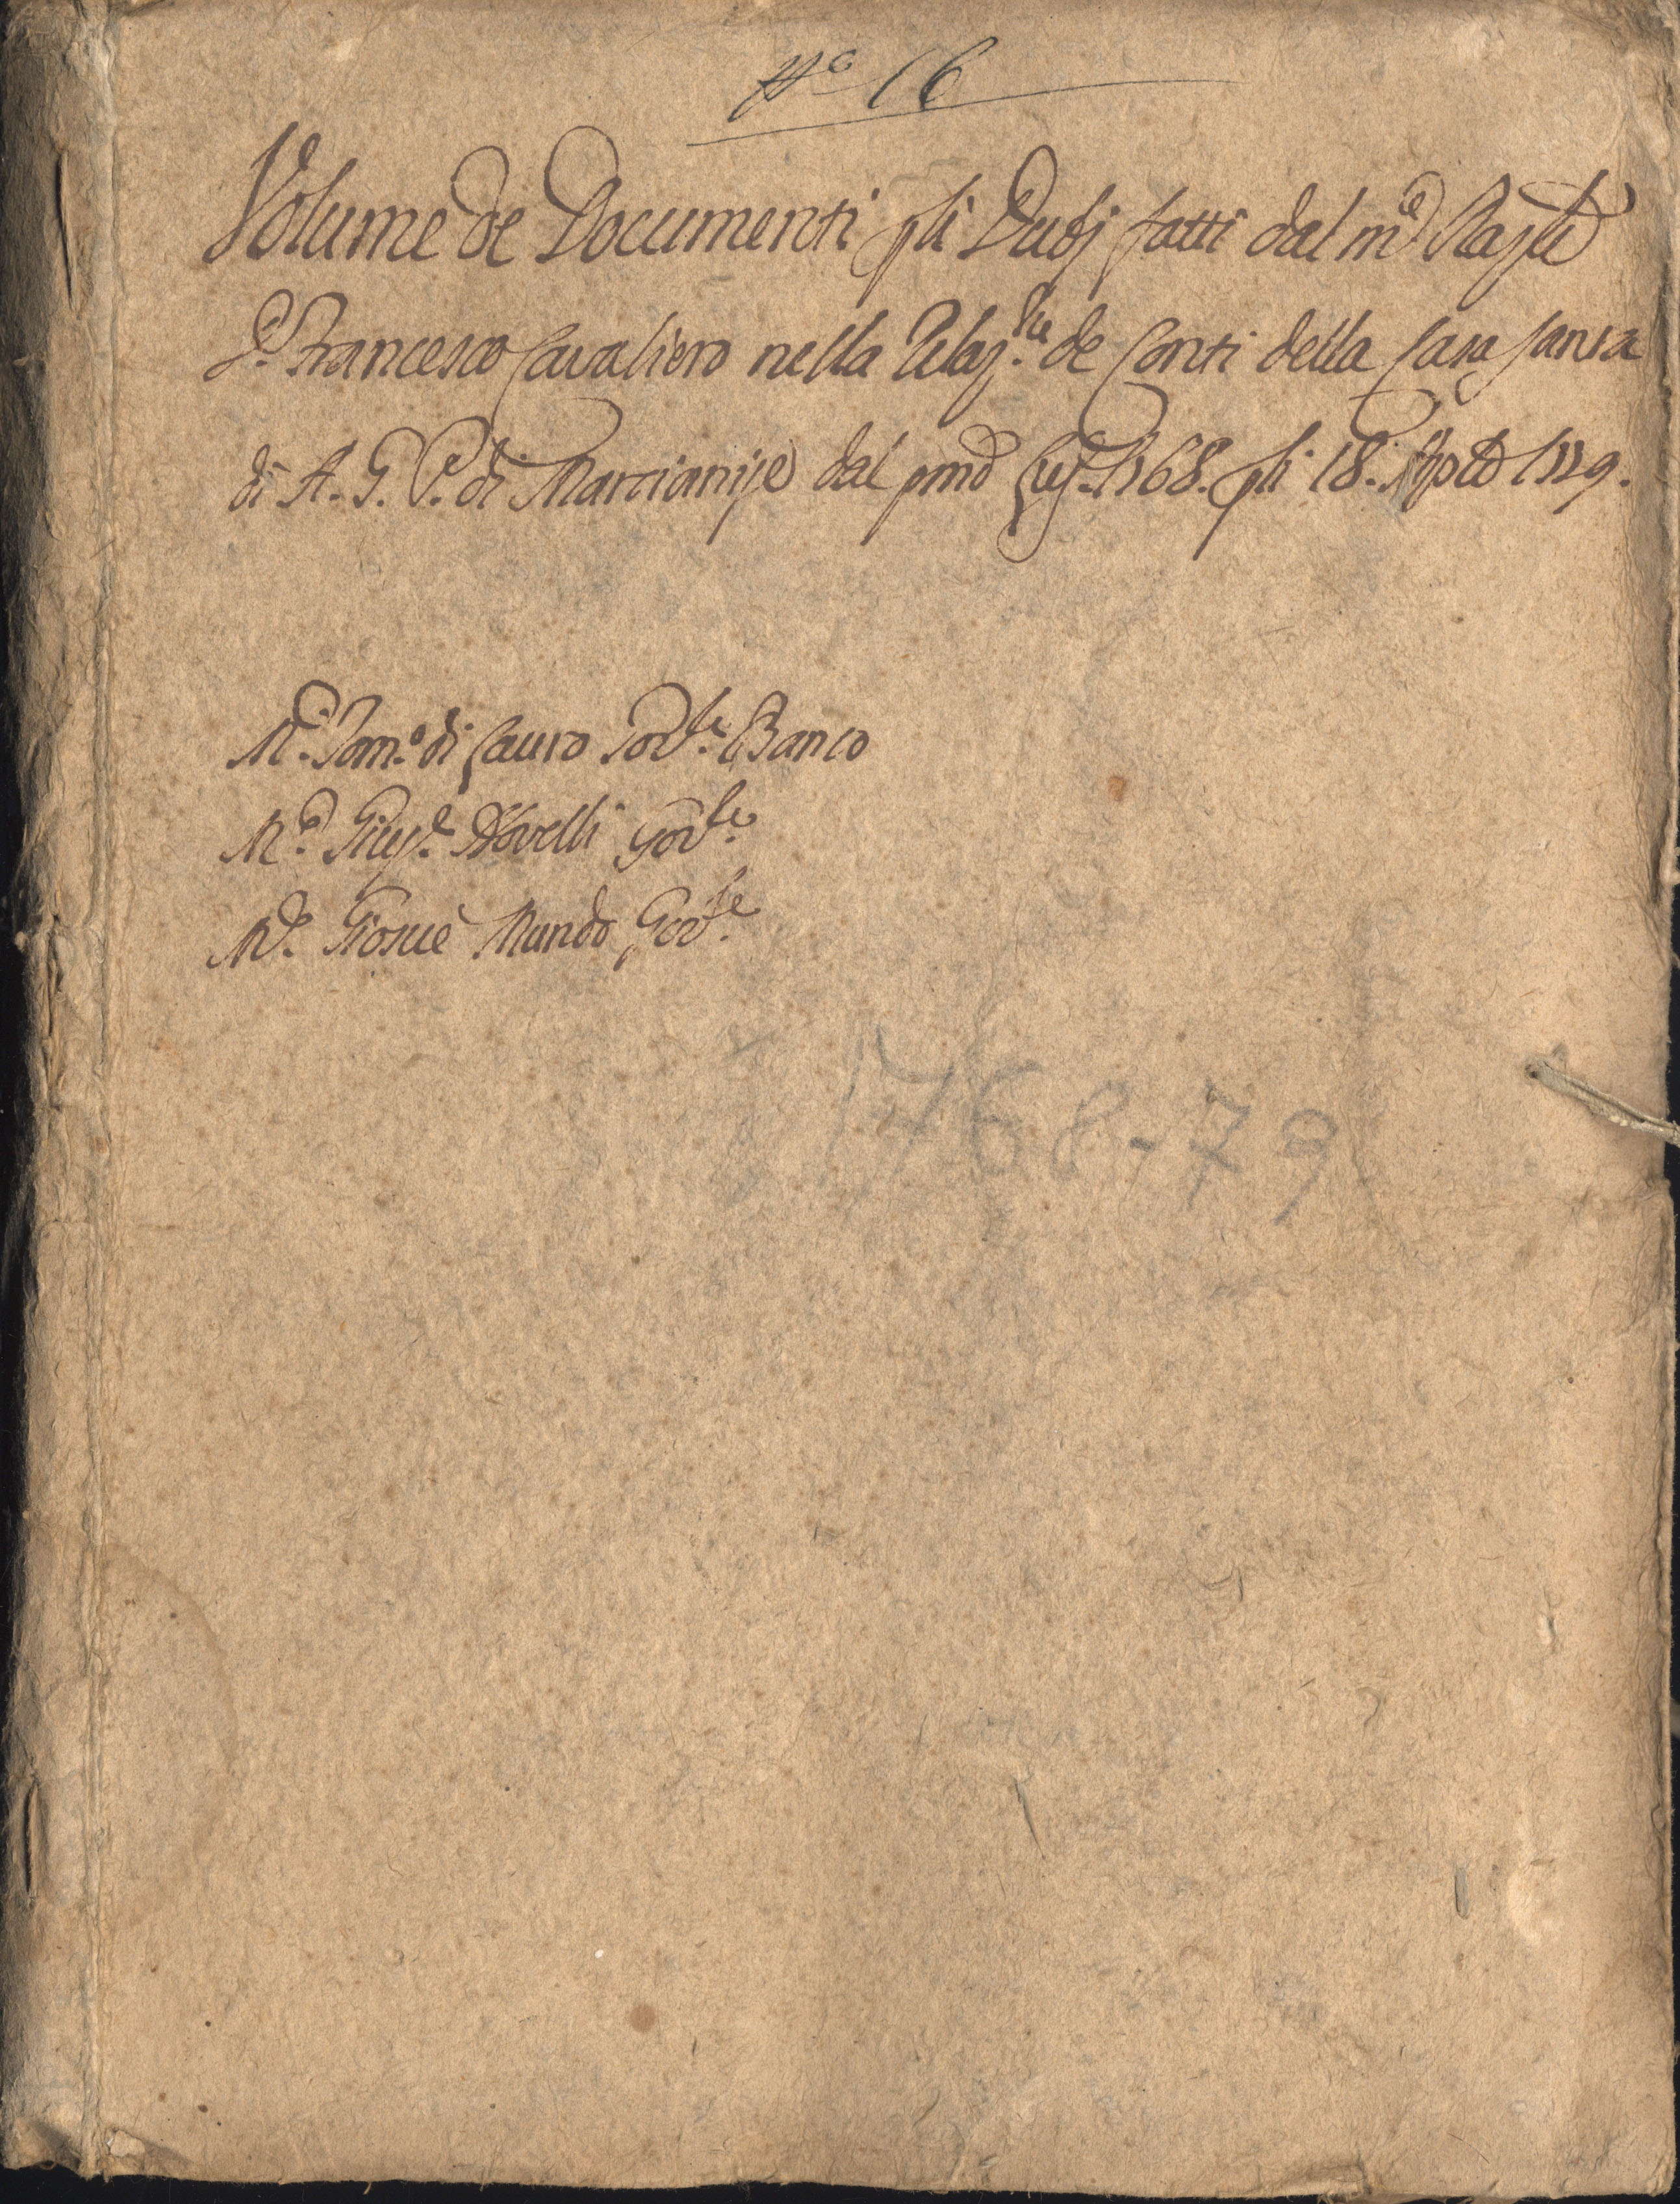 N.o 16
Volume de Documenti p li Dubj fatti dal m.co
D. Francesco Cavaliero nella Relaz.ne de Conti della Casa Santa
di A. G. P. di Marcianise dal pmo 1768. p li 18. Agosto 1779.
M.co di Lauro Gov.re Banco
M.co Gius.e Novelli Gov.re
M.co Giosuè Mundo Gov.re
1768-79